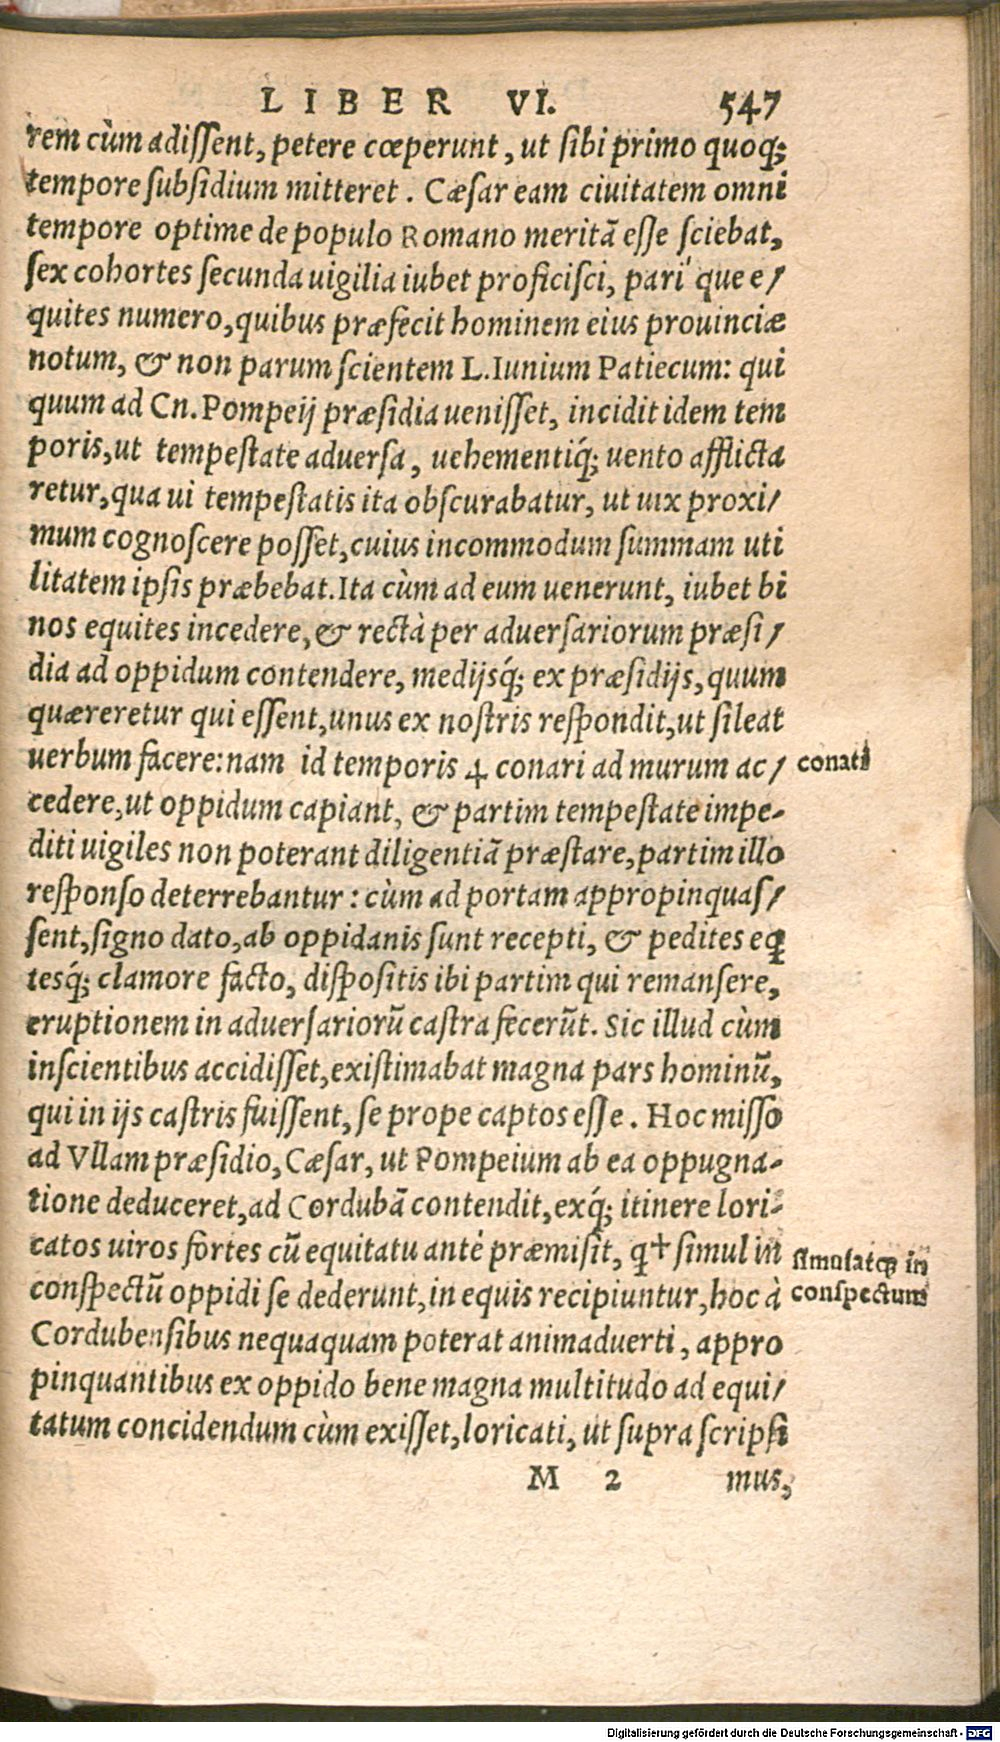 LIBER VI. 547
rem cùm adissent, petere cœperunt, ut sibi primo quoq;
tempore subsidium mitteret. Cæsar eam ciuitatem omni
tempore optime de populo Romano meritã esse sciebat,
sex cohortes secunda uigilia iubet proficisci, pari que e/
quites numero, quibus præfecit hominem eius prouinciæ
notum, & non parum scientem L. Iunium Patiecum: qui
quum ad Cn. Pompeij præsidia uenisset, incidit idem tem
poris, ut tempestate aduersa, uehementiq́; uento afflicta
retur, qua ui tempestatis ita obscurabatur, ut uix proxi/
mum cognoscere posset, cuius incommodum summam uti
litatem ipsis præbebat. Ita cùm ad eum uenerunt, iubet bi
nos equites incedere, & rectà per aduersariorum præsi/
dia ad oppidum contendere, medijsq́; ex præsidijs, quum
quæreretur qui essent, unus ex nostris respondit, ut sileat
uerbum facere: nam id temporis 4 conari ad murum ac/
conati
cedere, ut oppidum capiant, & partim tempestate impe-
diti uigiles non poterant diligentiã præstare, partim illo
responso deterrebantur: cùm ad portam appropinquas/
sent, signo dato, ab oppidanis sunt recepti, & pedites eq̃
tesq́; clamore facto, dispositis ibi partim qui remansere,
eruptionem in aduersariorũ castra fecerũt. Sic illud cùm
inscientibus accidisset, existimabat magna pars hominũ,
qui in ijs castris fuissent, se prope captos esse. Hoc misso
ad Vllam præsidio, Cæsar, ut Pompeium ab ea oppugna-
tione deduceret, ad Cordubã contendit, exq́; itinere lori-
catos uiros fortes cũ equitatu antè præmisit, q† simul in
simulatq; in
conspectũ oppidi se dederunt, in equis recipiuntur, hoc à
conspectum
Cordubensibus nequaquam poterat animaduerti, appro
pinquantibus ex oppido bene magna multitudo ad equi/
tatum concidendum cùm exisset, loricati, ut supra scripsi
M 2 mus,
Digitalisierung gefördert durch die Deutsche Forschungsgemeinschaft - DFG